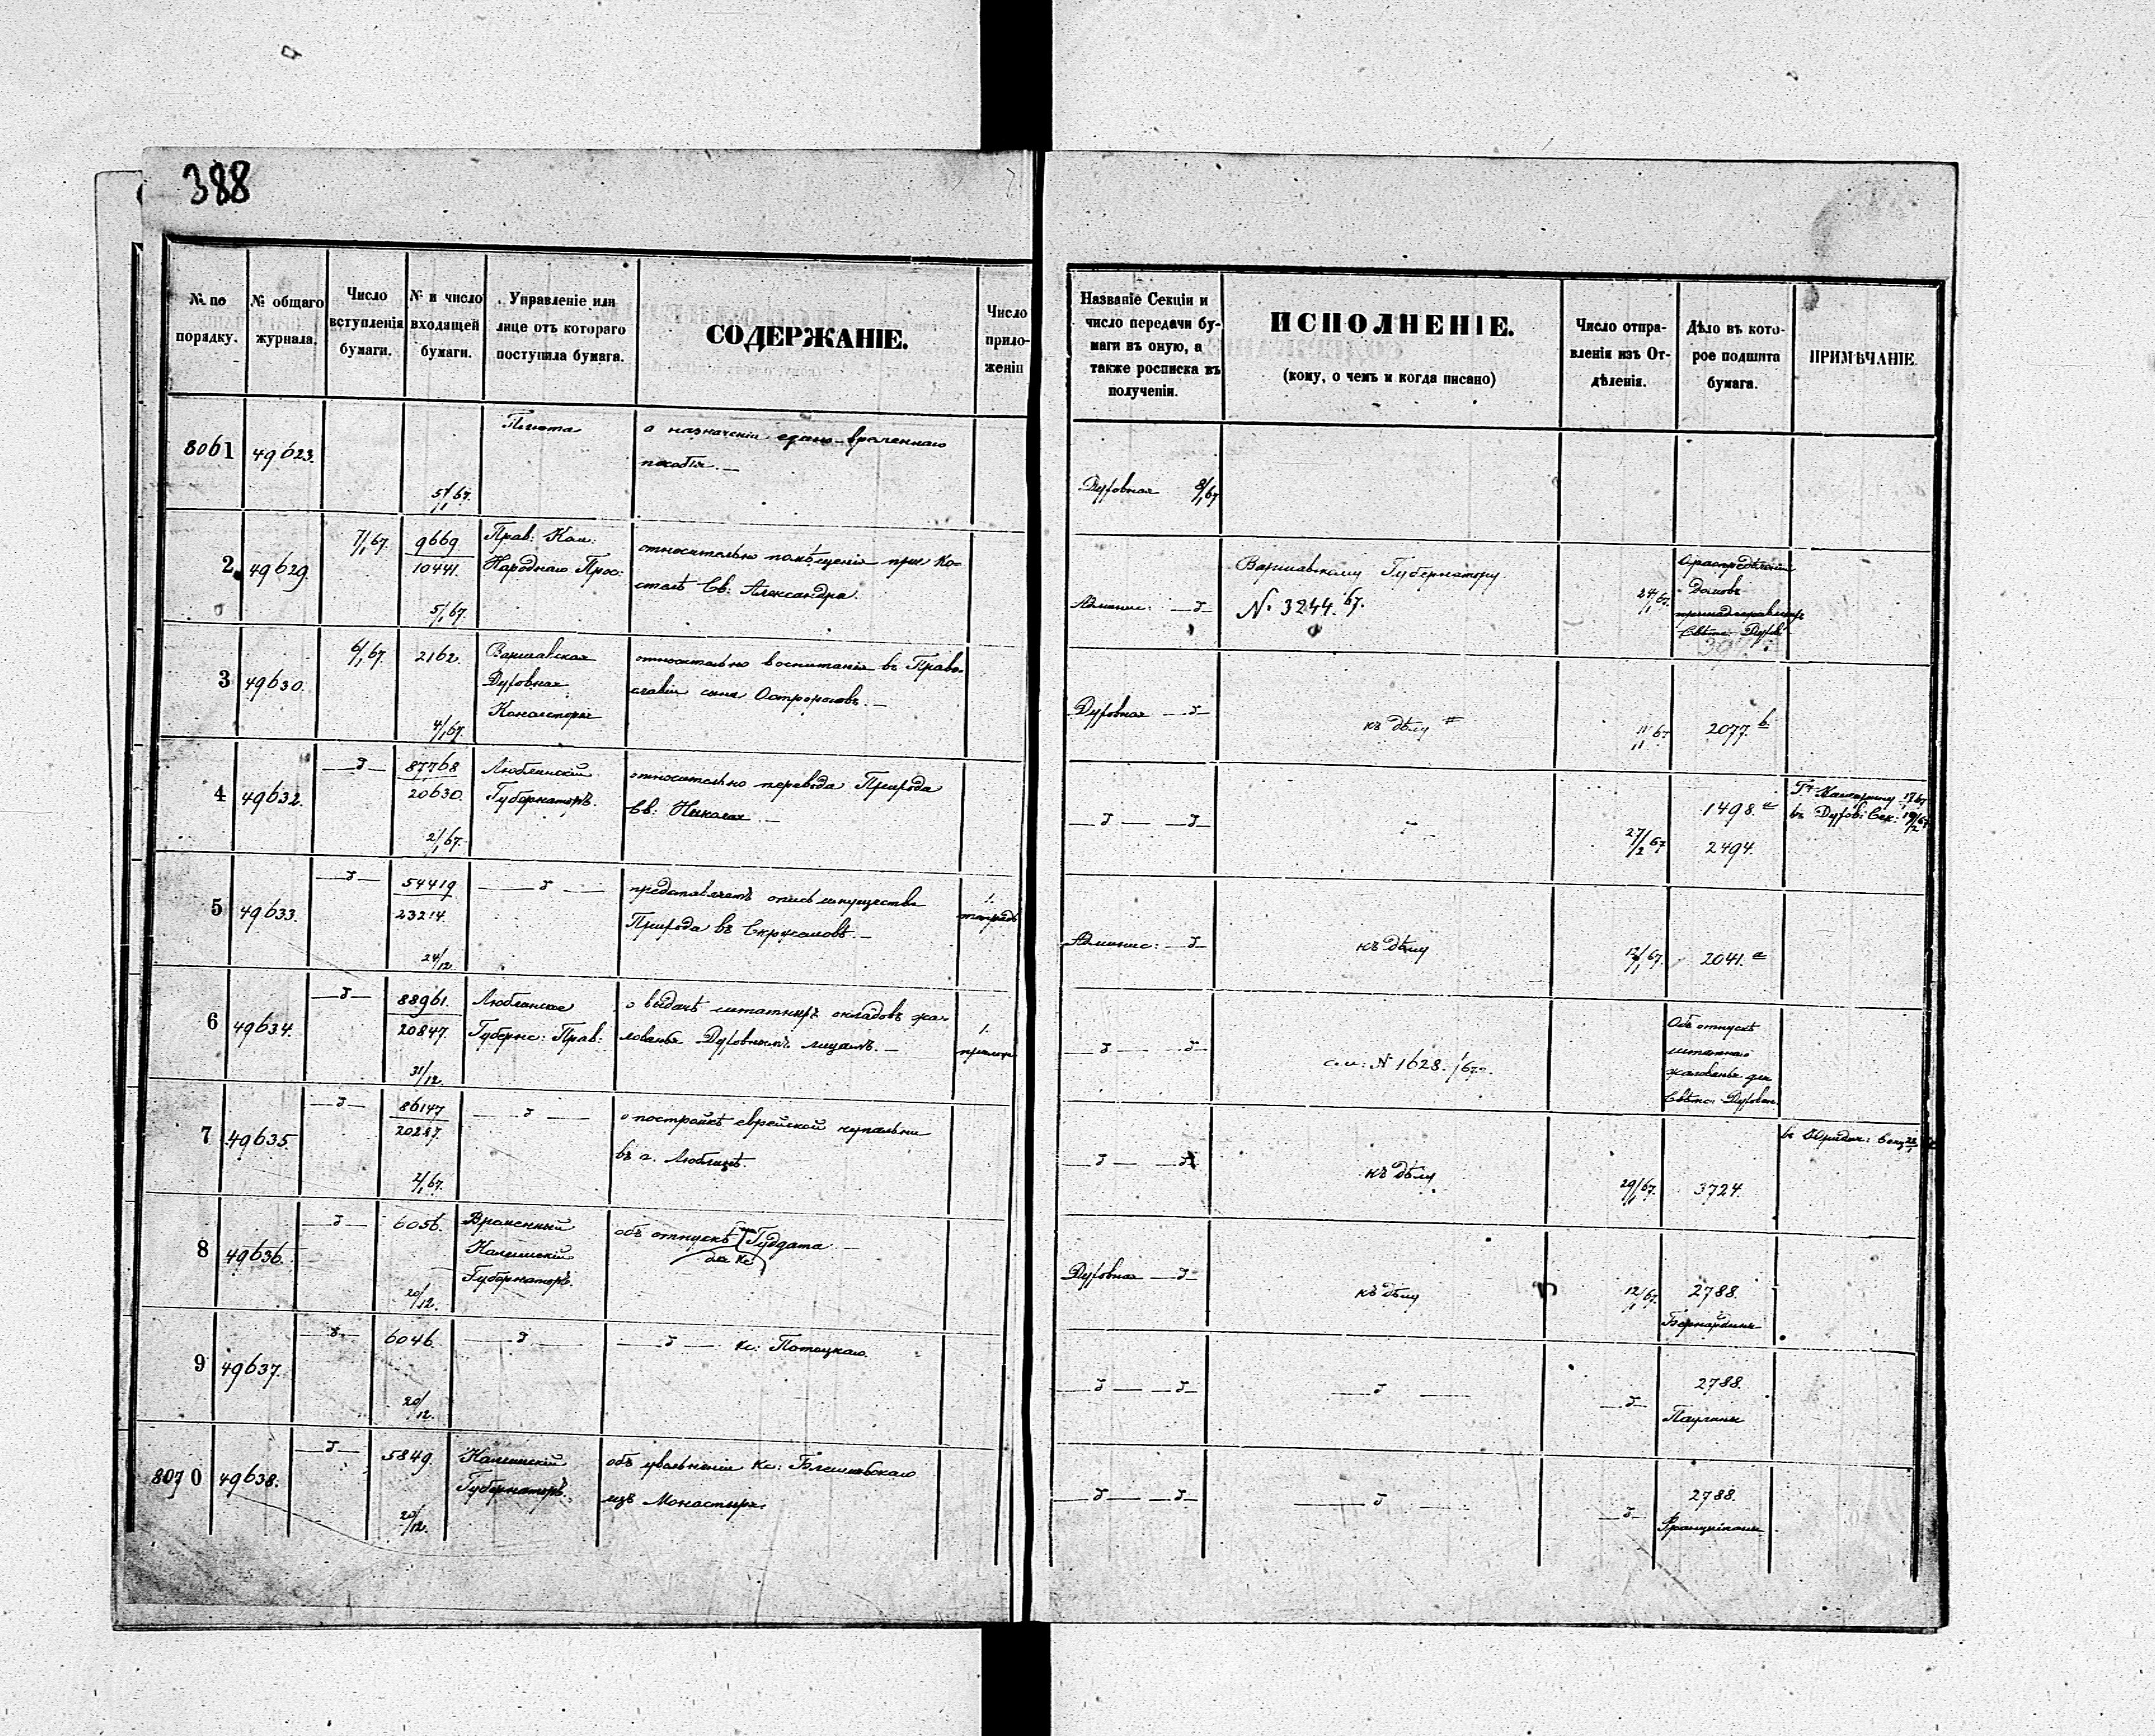 388
№ по порядку.
№ общаго журнала.
Число вступленія бумаги.
№ и число входящей бумаги.
Управленіе или лице отъ котораго поступила бумага.
СОДЕРЖАНІЕ.
Число приложеніи
Названіе Секціи и число передачи бумаги въ оную, а также росписка въ полученіи.
ИСПОЛНЕНІЕ.
(кому, о чемъ и когда писано)
Число отправленія изъ Отдѣленія.
Дѣло въ которое подшита бумага.
ПРИМѢЧАНІЕ.
8061 49623.
5/1 67.
о назначеніи едино-временнаго
пособія. —
Духовная 8/1 67
2 49629. 7/1 67. 9669
10441.
5/1 67.
Прав: Ком:
Народнаго Прос:
относительно помѣщенія при Ко-
стелѣ Св: Александра.
Админис: — J —
Варшавскому Губернатору
№ 3244. 67.
24/1 67.
О распредѣленіи
домовъ
принадлежавшихъ
Свѣтс: Духов:
3 49630. 6/1 67. 2162.
4/1 67.
Варшавская
Духовная
Консисторія
относительно воспитанія въ Право-
славіи сына
Духовная — J —
къ дѣлу
11/1 67
2077. b.
4 49632. — J — 87768
20630.
2/1 67.
Люблинскій
Губернаторъ.
относительно перевода Прихода
Св: Николая —
— J — — J —
27/2 67
1498. a
2494.
въ Духов: Сек: 19/2 67
5 49633. — J — 54419
23214.
24/12
— J —
представляетъ опись имущества
Прихода въ
1.
тетрадь
Админис: — J —
къ дѣлу
12/1 67.
2041. a
6 49634. — J — 88961.
20847.
31/12.
Люблинское
Губернс: Прав:
о выдачѣ штатныхъ окладовъ жа-
лованья Духовнымъ лицамъ. —
1.
прилож
— J — — J —
см: № 1628. /67.
Объ отпускѣ
штатнаго
жалованья для
Свѣтс: Духовен.
7 49635. — J — 86147
20287.
2/1 67.
— J —
о постройкѣ еврейской купальни
въ г. Люблинѣ.
— J — — J —
къ дѣлу
29/1 67.
3724.
въ Юридич:
8 49636. — J — 6056.
20/12.
Временный
Калишскій
Губернаторъ.
объ отпускѣ Гуддата —
для Кс
Духовная — J —
къ дѣлу
12/1 67.
2788.
Бернардины
9 49637. — J — 6046.
20/12.
— J —
— J — Кс: Потоцкаго.
— J — — J —
— J —
— J —
2788.
Паулины
8070 49638. — J — 5849.
20/12.
Калишскій
Губернаторъ.
объ увольненіи Кс:
изъ Монастыря.
— J — — J —
— J —
— J —
2788.
Францискане